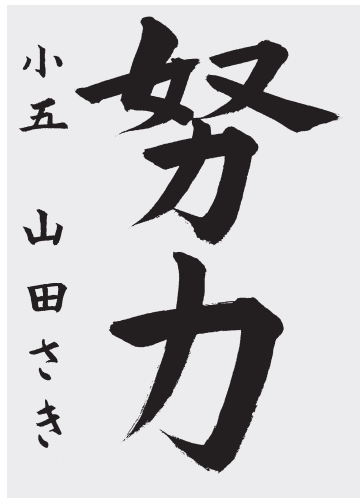 努力
小五 山田さき